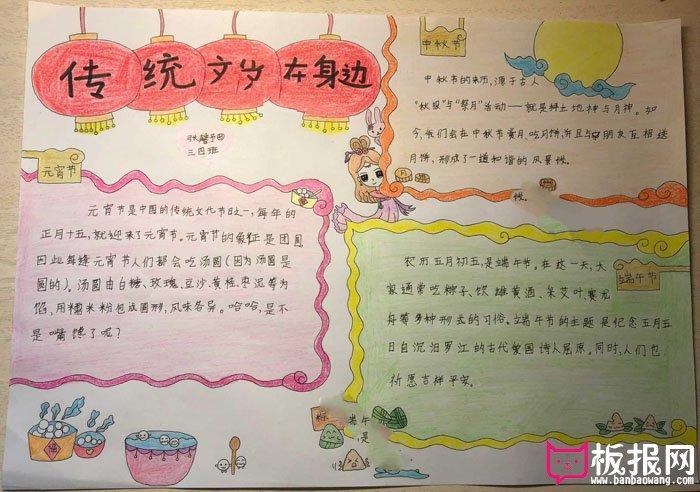 传统文岁在身边
三四班
元宵节
元宵节是中国的传统文化节日之一,每年的
正月十五,就迎来了元宵节。元宵节的象征是团圆
因此每逢元宵节人们都会吃汤圆(因为汤圆是
圆的)。汤圆由白糖、玫瑰、豆沙、黄桂、枣泥等为
馅,用糯米粉包成圆形,风味各异。哈哈,是不
是嘴馋了呢?
中秋节
中秋节的来历,源于古人
"秋报"与"祭月"活动——就是拜土地神与月神。如
今,我们会在中秋节赏月、吃月饼,并且与朋友互相送
月饼,形成了一道和谐的风景
候。
端午节
农历五月初五,是端午节。在这一天,大
家通常吃粽子、饮雄黄酒、朱艾叶、赛龙
舟等多种形式的习俗。端午节的主题是纪念五月五
日自沉汨罗江的古代爱国诗人屈原。同时,人们也
祈愿吉祥平安。
端午
是
福
板报网
www.banbaowang.com